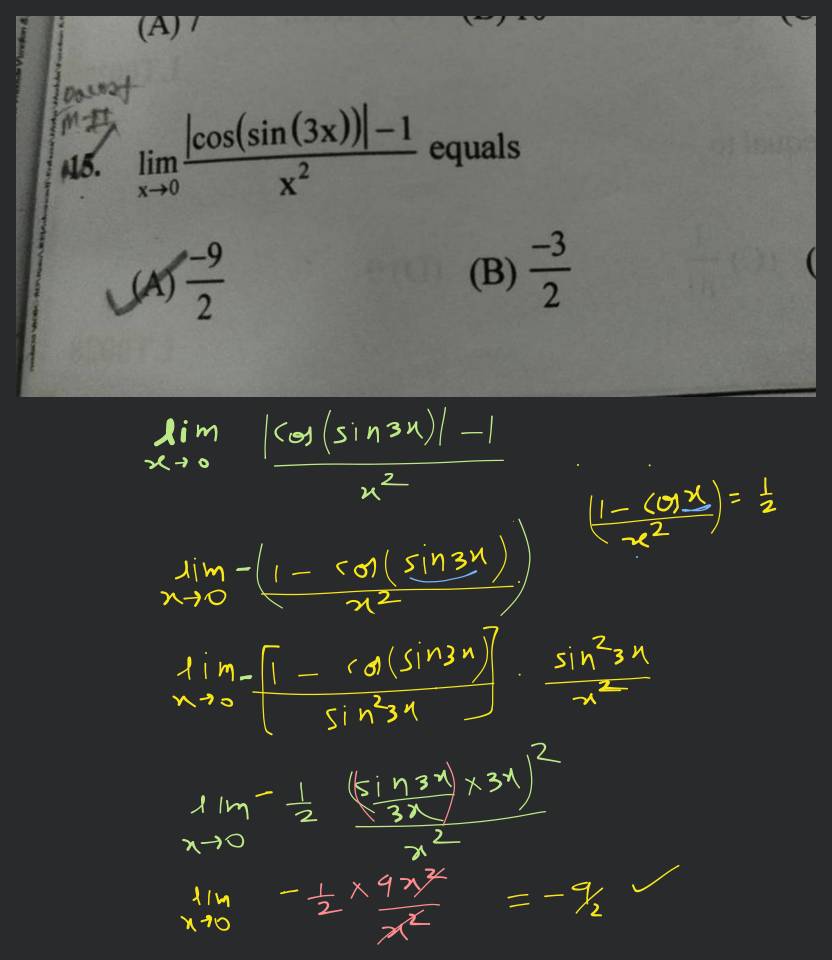 (A) 7
M-II
15. lim x→0 |cos(sin(3x))|-1 / x² equals
(A) -9/2 (B) -3/2 (
lim x→0 |cos(sin3x)|-1 / x²
(1-cosx / x²) = 1/2
lim x→0 -(1-cos(sin3x) / x²)
lim x→0 -[1-cos(sin3x) / sin²3x] . sin²3x / x²
lim x→0 -1/2 (sin3x / 3x × 3x)² / x²
lim x→0 -1/2 × 9x² / x² = -9/2 ✓